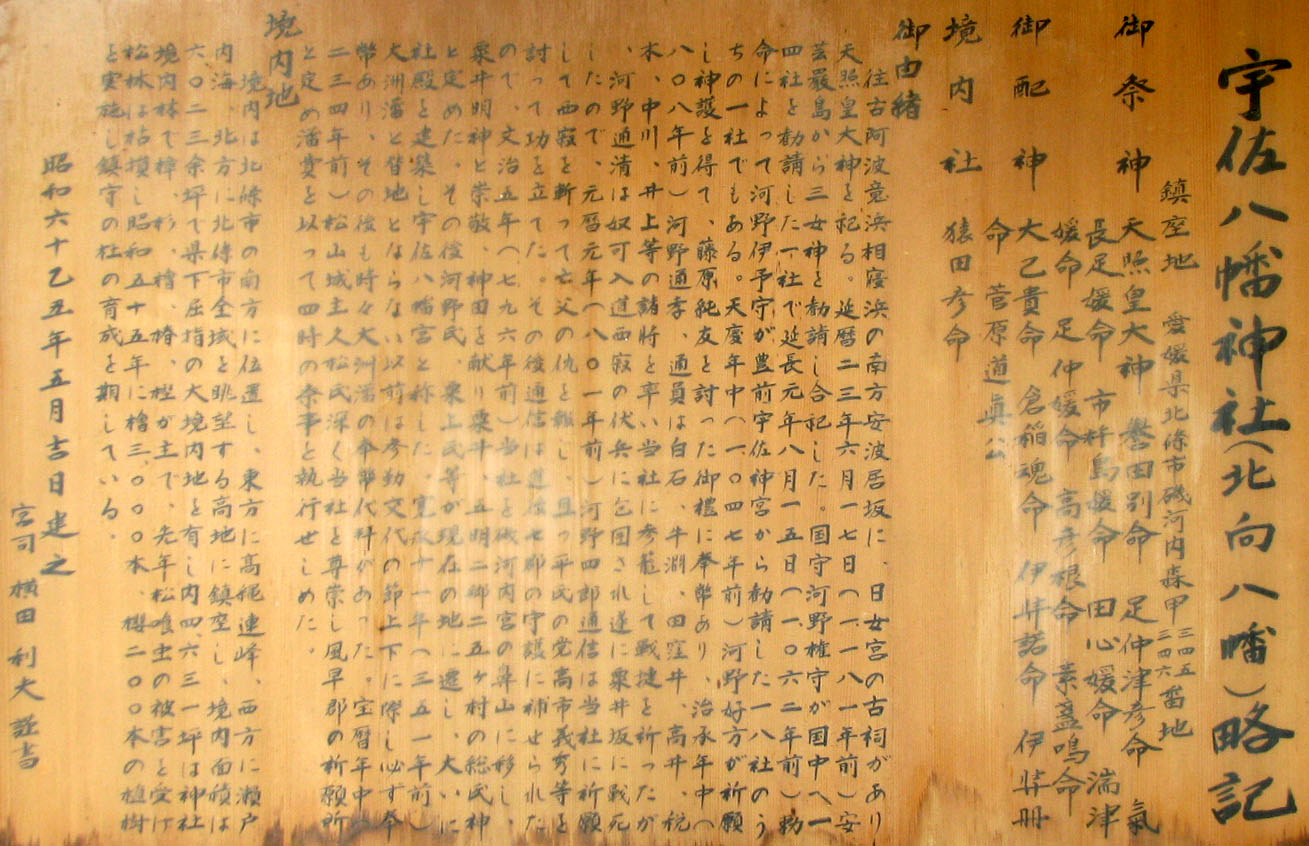 宇佐八幡神社(北向八幡)略記
鎮座地 愛媛県北條市磯河内森甲三四五三四六番地
御祭神 天照皇大神 誉田別命 足仲津彦命 氣
長足媛命 市杵島媛命 田心媛命 湍津
媛命 足仲媛命 高彦根命 素盞鳴命
御配神 大己貴命 倉稲魂命 伊弉諾命 伊弉冊
命 菅原道眞公
境内社 猿田彦命
御由緒
往古阿波竟浜相寝浜の南方安波居坂に、日女宮の古祠があり
天照皇大神を祀る。延暦二三年六月一七日(一一八一年前)安
芸嚴島から三女神を勧請し合祀した。国守河野権守が国中へ一
四社を勧請した一社で延長元年八月一五日(一、〇六二年前)勅
命によって河野伊予守が豊前宇佐神宮から勧請した一八社のう
ちの一社でもある。天慶年中(一、〇四七年前)河野好方が祈願
し神護を得て、藤原純友を討った御禮に奉幣あり、治承年中(
八〇八年前)河野通孝、通員は白石、牛淵、田窪井、高井、税
本、中川、井上等の諸将を卒い当社に参籠して戦捷を祈ったが
、河野通清は奴可入道西寂の伏兵に包囲され遂に粟井坂に戦死
したので、元暦元年(八〇一年前)河野四郎通信は当社に祈願
して西寂を斬って亡父の仇を報し、且つ平氏の党高市義秀等を
討って功を立てた。その後通信は道後七郡の守護に補せられた
ので、文治五年(七九六年前)当社を磯河内宮の鼻山に移し、
粟井明神と崇敬、神田を献り粟井、五明二郷二五ヶ村の総氏神
と定めた。その後河野氏、粟上氏等が現在の地に遷し、大いに
社殿を建築し宇佐八幡宮と称した、寛永十一年(三五一年前)
大洲藩と替地とならない以前は参勤交代の節上下に際し必ず奉
幣あり、その後も時々大洲藩の奉幣代拝があった。宝暦年中(
二三四年前)松山城主久松氏深く当社を尊崇し風早郡の祈願所
と定め藩費を以って四時の祭事を執行せしめた。
境内地
境内は北條市の南方に位置し、東方に高縄連峰、西方に瀬戸
内海、北方に北條市全域を眺望する高地に鎮座し、境内面積は
六〇二三余坪で県下屈指の大境内地を有し内四、六三一坪は神社
境内林で樟、杉、檜、椿、樫が主で、先年松喰虫の被害を受け
松林は枯損し昭和五十五年に檜三、〇〇〇本、櫻二〇〇本の植樹
を実施し鎮守の杜の育成を期している。
昭和六十乙丑年五月吉日建之
宮司 横田利大謹書